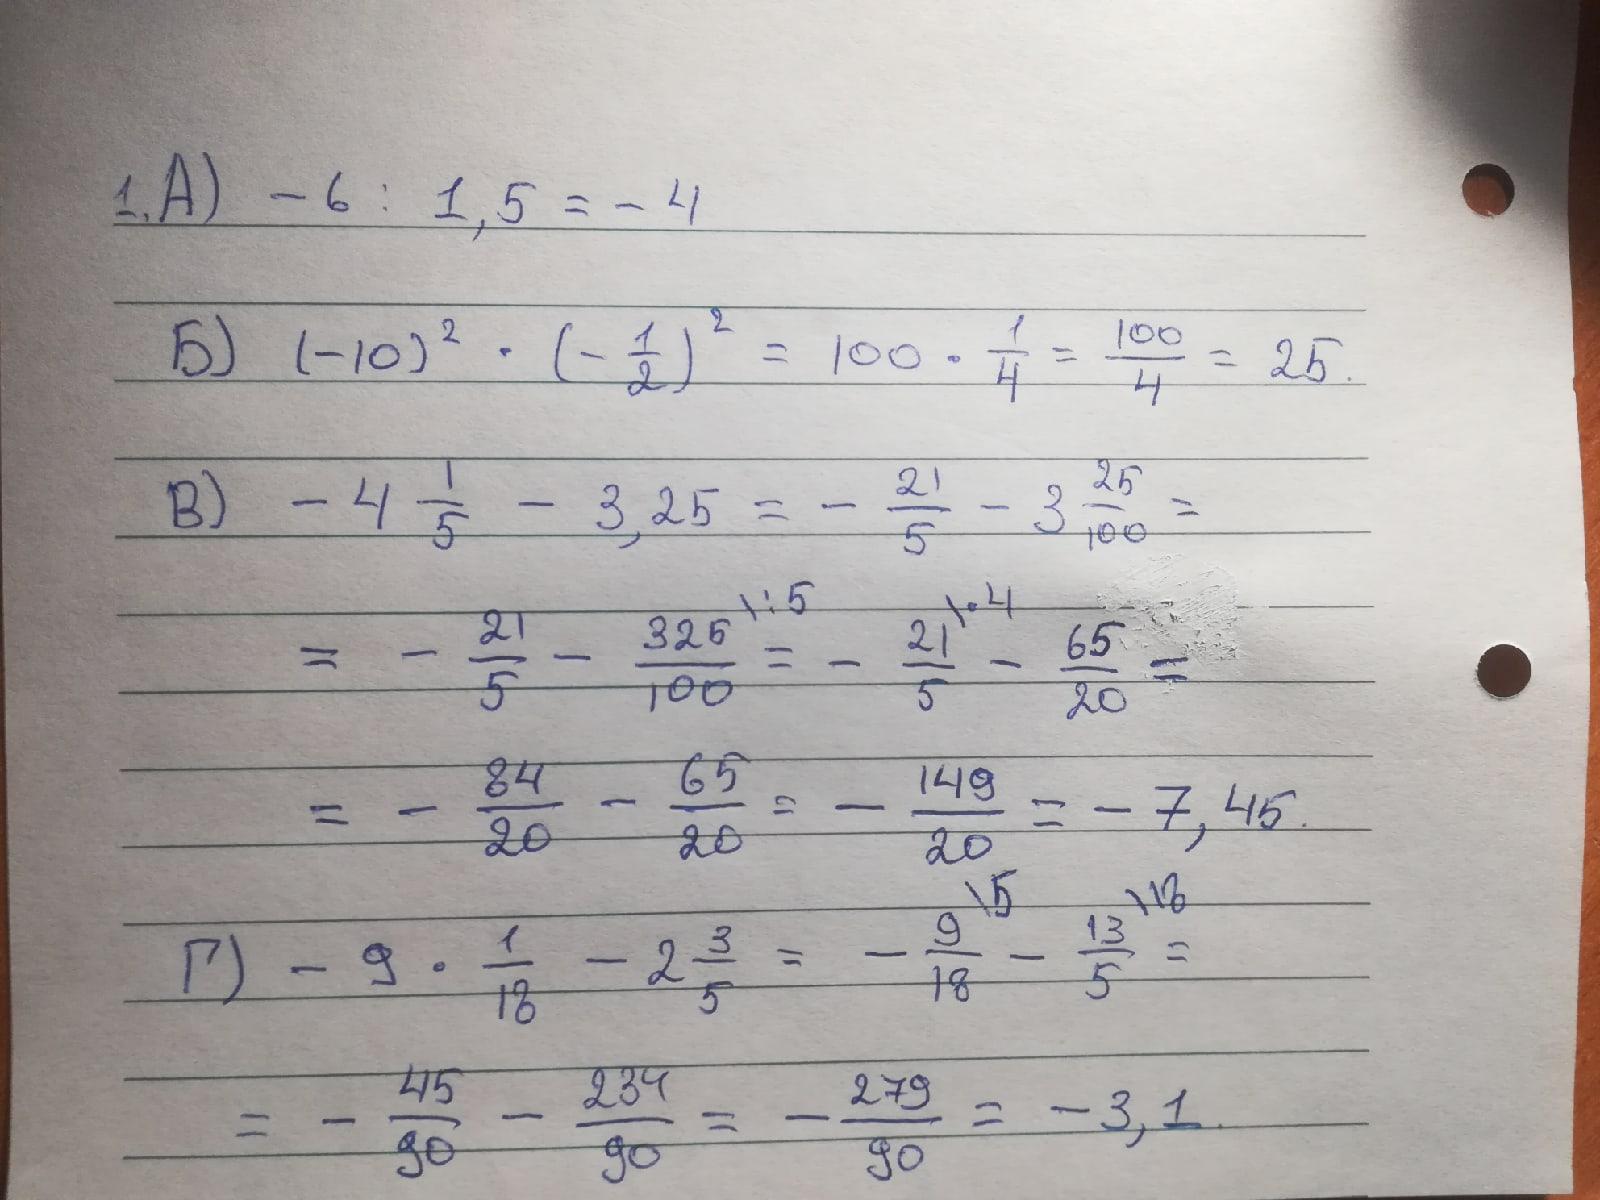 1. А) - 6 : 1,5 = - 4
Б) (-10)² · (- 1/2)² = 100 · 1/4 = 100/4 = 25.
В) - 4 1/5 - 3,25 = - 21/5 - 3 25/100 =
= - 21/5 - 325/100 \:5 = - 21/5 \·4 - 65/20 =
= - 84/20 - 65/20 = - 149/20 = - 7,45.
Г) - 9 · 1/18 - 2 3/5 = - 9/18 \5 - 13/5 \18 =
= - 45/90 - 234/90 = - 279/90 = - 3,1.